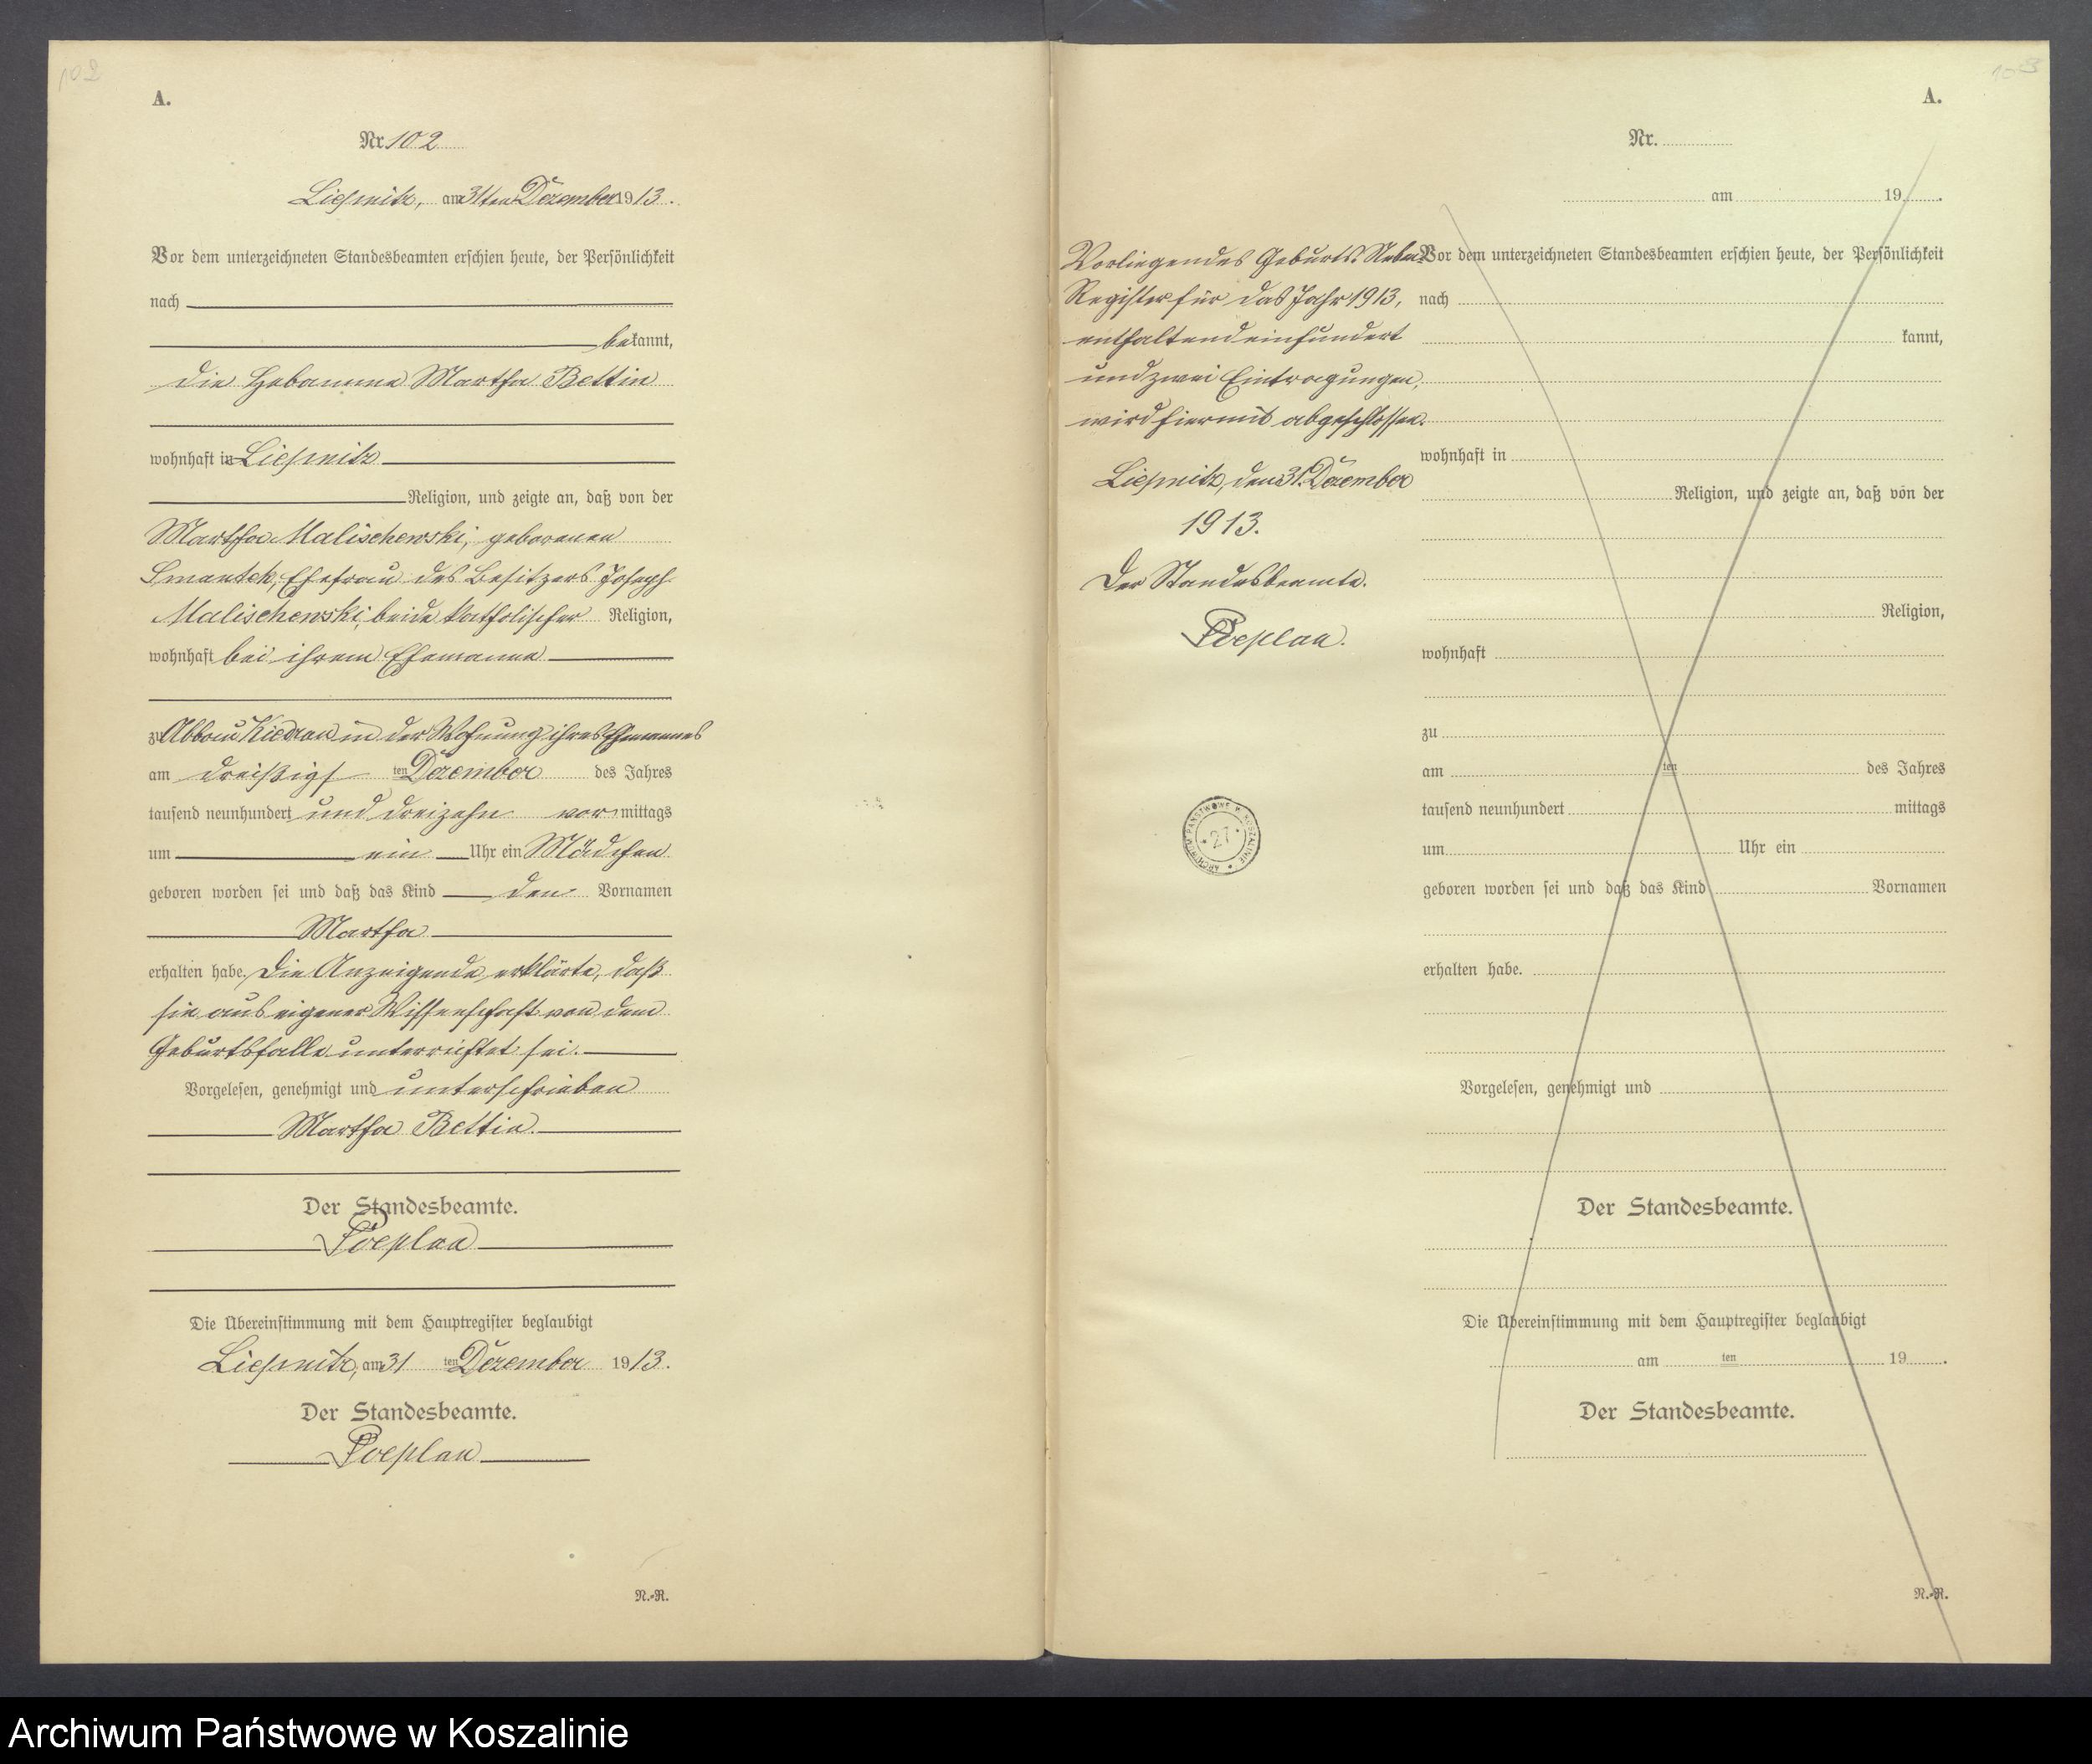 102
A.
Nr. 102
Liepnitz, am 31ten Dezember 1913.
Vor dem unterzeichneten Standesbeamten erschien heute, der Persönlichkeit
nach
bekannt,
die Hebamme Martha Bettin
wohnhaft in Liepnitz
Religion, und zeigte an, daß von der
Martha Malischewski, geborenen
Smantek, Ehefrau des Besitzers Joseph
Malischewski, beide katholischer Religion,
wohnhaft bei ihrem Ehemanne
zu Abbau Kiedrau in der Wohnung ihres Ehemannes
am dreißigsten Dezember des Jahres
tausend neunhundert und dreizehn vormittags
um ein Uhr ein Mädchen
geboren worden sei und daß das Kind den Vornamen
Martha
erhalten habe. Die Anzeigende erklärte, daß
sie aus eigener Wissenschaft von dem
Geburtsfalle unterrichtet sei.
Vorgelesen, genehmigt und unterschrieben
Martha Bettin.
Der Standesbeamte.
Poeplau
Die Übereinstimmung mit dem Hauptregister beglaubigt
Liepnitz, am 31 ten Dezember 1913.
Der Standesbeamte.
Poeplau
N.-R.
103
A.
Nr.
am 19 .
Vorliegendes Geburts-Neben-
Register für das Jahr 1913,
enthaltend einhundert
und zwei Eintragungen,
wird hiermit abgeschlossen.
Liepnitz, den 31. Dezember
1913.
Der Standesbeamte.
Poeplau.
ARCHIWUM PAŃSTWOWE W KOSZALINIE
27
Vor dem unterzeichneten Standesbeamten erschien heute, der Persönlichkeit
nach
kannt,
wohnhaft in
Religion, und zeigte an, daß von der
Religion,
wohnhaft
zu
am ten des Jahres
tausend neunhundert mittags
um Uhr ein
geboren worden sei und daß das Kind Vornamen
erhalten habe.
Vorgelesen, genehmigt und
Der Standesbeamte.
Die Übereinstimmung mit dem Hauptregister beglaubigt
am ten 19 .
Der Standesbeamte.
N.-R.
Archiwum Państwowe w Koszalinie